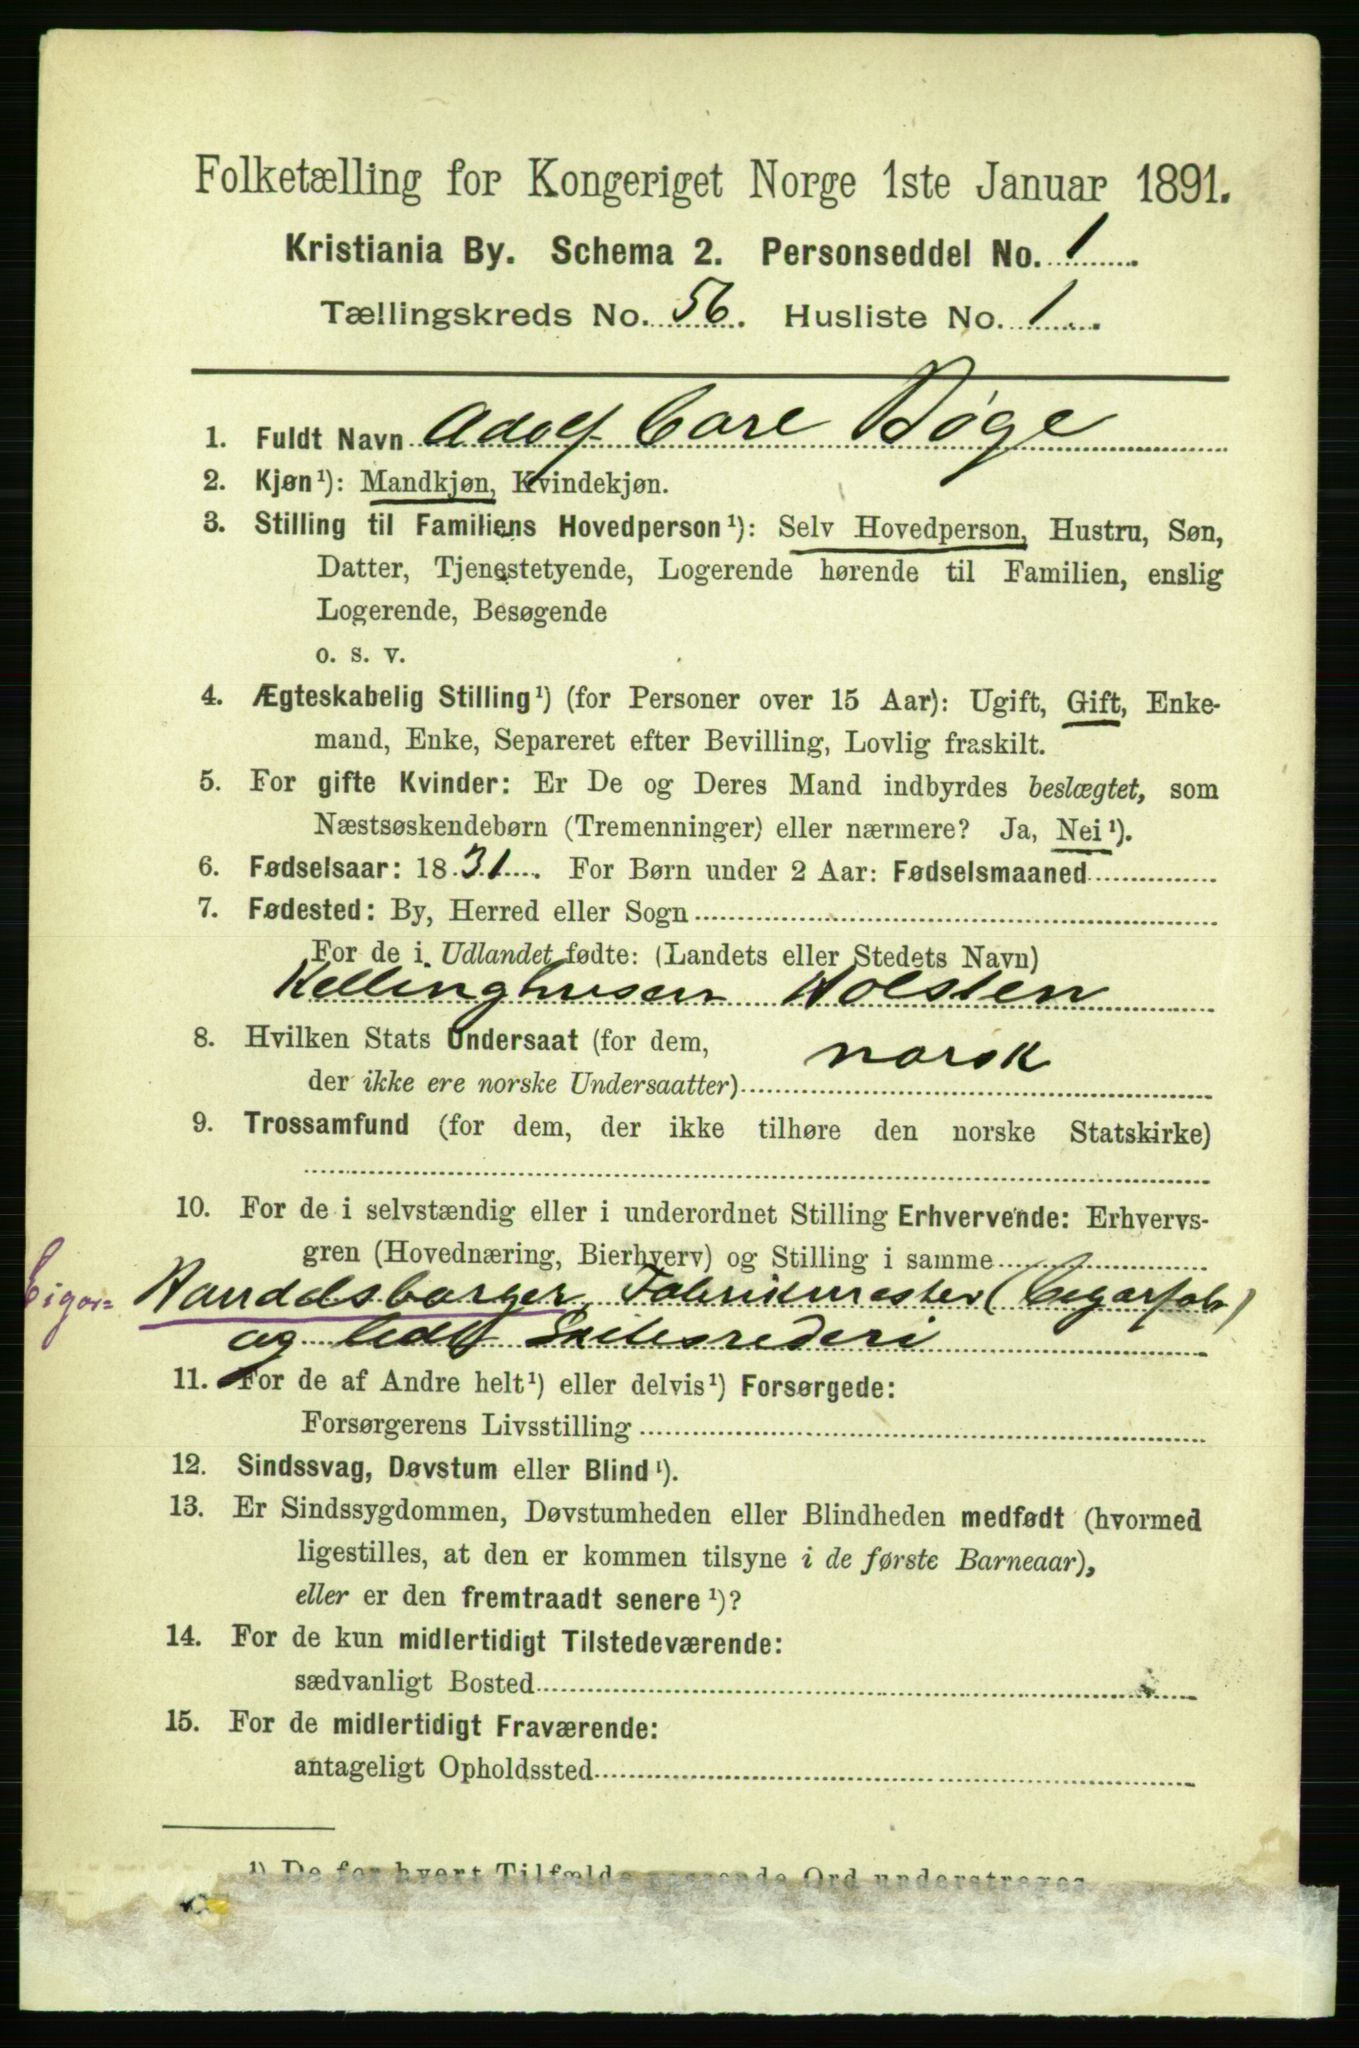 Folketælling for Kongeriget Norge 1ste Januar 1891.
Kristiania By. Schema 2. Personseddel No. 1
Tællingskreds No. 56. Husliste No. 1
1. Fuldt Navn Adolf Carl Bøge
2. Kjøn¹): Mandkjøn, Kvindekjøn.
3. Stilling til Familiens Hovedperson¹): Selv Hovedperson, Hustru, Søn,
Datter, Tjenestetyende, Logerende hørende til Familien, enslig
Logerende, Besøgende
o. s. v.
4. Ægteskabelig Stilling¹) (for Personer over 15 Aar): Ugift, Gift, Enke-
mand, Enke, Separeret efter Bevilling, Lovlig fraskilt.
5. For gifte Kvinder: Er De og Deres Mand indbyrdes beslægtet, som
Næstsøskendebørn (Tremenninger) eller nærmere? Ja, Nei¹).
6. Fødselsaar: 1831. For Børn under 2 Aar: Fødselsmaaned
7. Fødested: By, Herred eller Sogn
For de i Udlandet fødte: (Landets eller Stedets Navn)
Kellinghusen Holsten
8. Hvilken Stats Undersaat (for dem,
der ikke ere norske Undersaatter) norsk
9. Trossamfund (for dem, der ikke tilhøre den norske Statskirke)
10. For de i selvstændig eller i underordnet Stilling Erhvervende: Erhvervs-
gren (Hovednæring, Bierhverv) og Stilling i samme
Cigar= Handelsborger, Fabrikmester (Cigarfab)
og Skibsrederi
11. For de af Andre helt¹) eller delvis¹) Forsørgede:
Forsørgerens Livsstilling
12. Sindssvag, Døvstum eller Blind¹).
13. Er Sindssygdommen, Døvstumheden eller Blindheden medfødt (hvormed
ligestilles, at den er kommen tilsyne i de første Barneaar),
eller er den fremtraadt senere¹)?
14. For de kun midlertidigt Tilstedeværende:
sædvanligt Bosted
15. For de midlertidigt Fraværende:
antageligt Opholdssted
¹) De for hvert Tilfælde passende Ord understreges